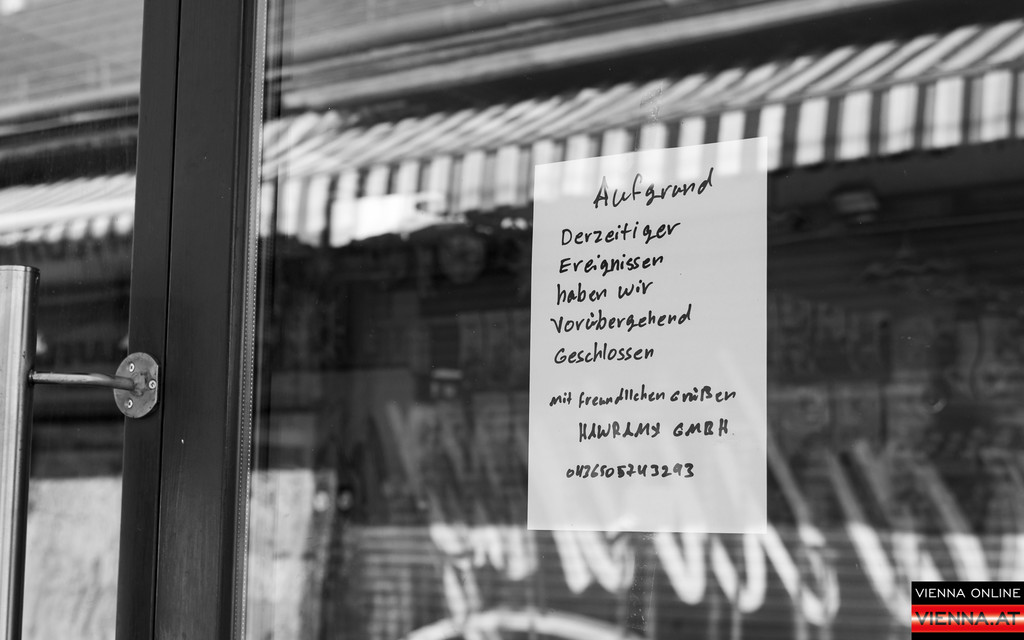 Aufgrund
Derzeitiger
Ereignissen
haben wir
Vorübergehend
Geschlossen
mit freundlichen Grüßen
HAWRAMY GMBH.
0436505743293
VIENNA ONLINE
VIENNA.AT